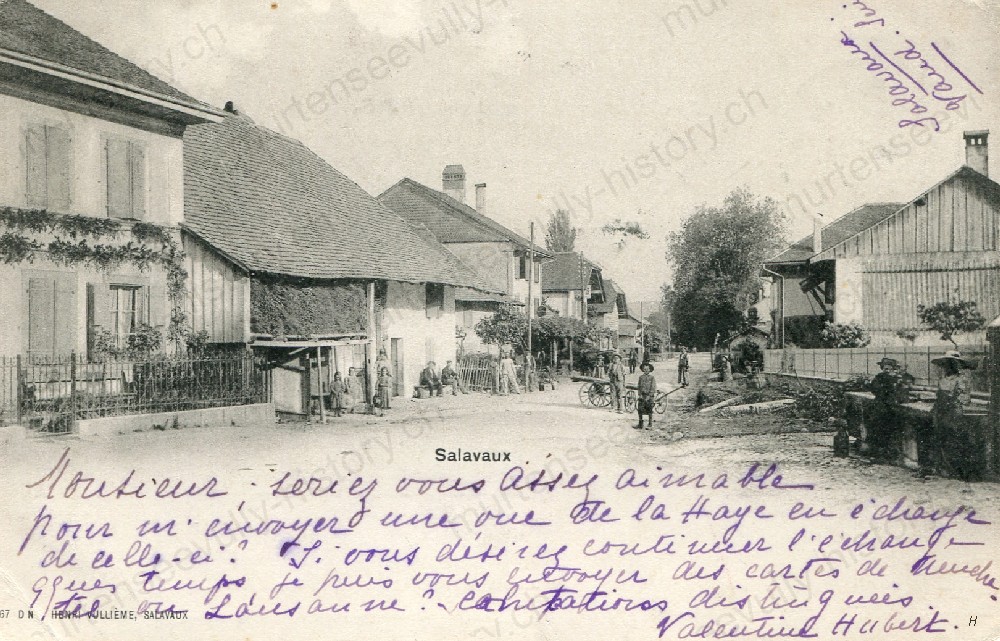 Salavaux
Vaud.
Salavaux
Monsieur; seriez vous assez aimable
pour m'envoyer une vue de la Haye en échange
de celle-ci? Si vous désirez continuer l'échange
qques temps je puis vous envoyer des cartes de Neuchâ-
tel ou Lausanne?
distinguées.
Valentine Hubert.
67 DN HENRI VULLIÈME, SALAVAUX
H
murtenseevully-history.ch